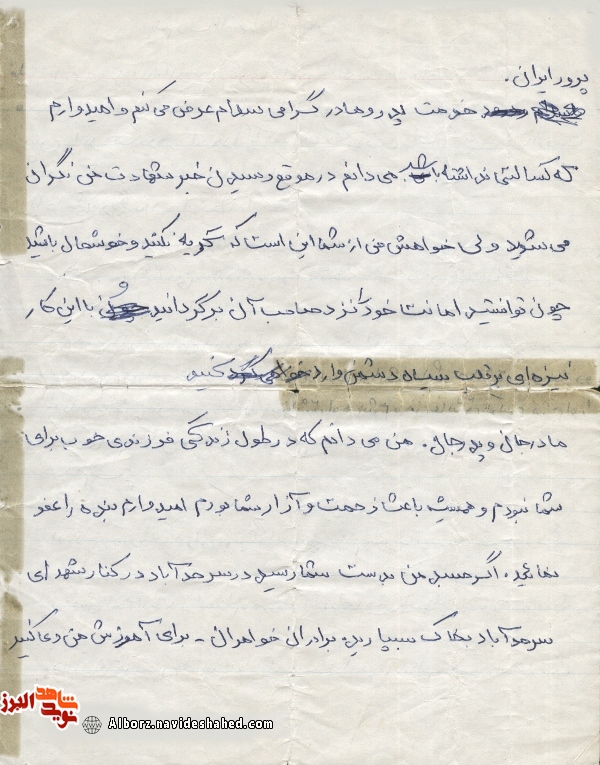 پرور ایران.
خدمت پدر و مادر گرامی سلام عرض می کنم و امیدوارم
که کسالتی نداشته باشید. می دانم در موقع رسیدن خبر شهادت من نگران
می شوید ولی خواهش من از شما این است که گریه نکنید و خوشحال باشید
چون توانستید امانت خود را نزد صاحب آن برگردانید و با این کار
نیزه ای بر قلب سیاه دشمن وارد کنید
مادر جان و پدر جان. من می دانم که در طول زندگی فرزندی خوب برای
شما نبودم و همیشه باعث زحمت و آزار شما بودم امیدوارم بنده را عفو
نمائید. اگر جسد من بدست شما رسید در سرحدآباد در کنار شهدای
سرحدآباد بخاک بسپارید. برادران خواهران - برای آمرزش من دعا کنید
شاهد
نوید
البرز
Alborz.navideshahed.com